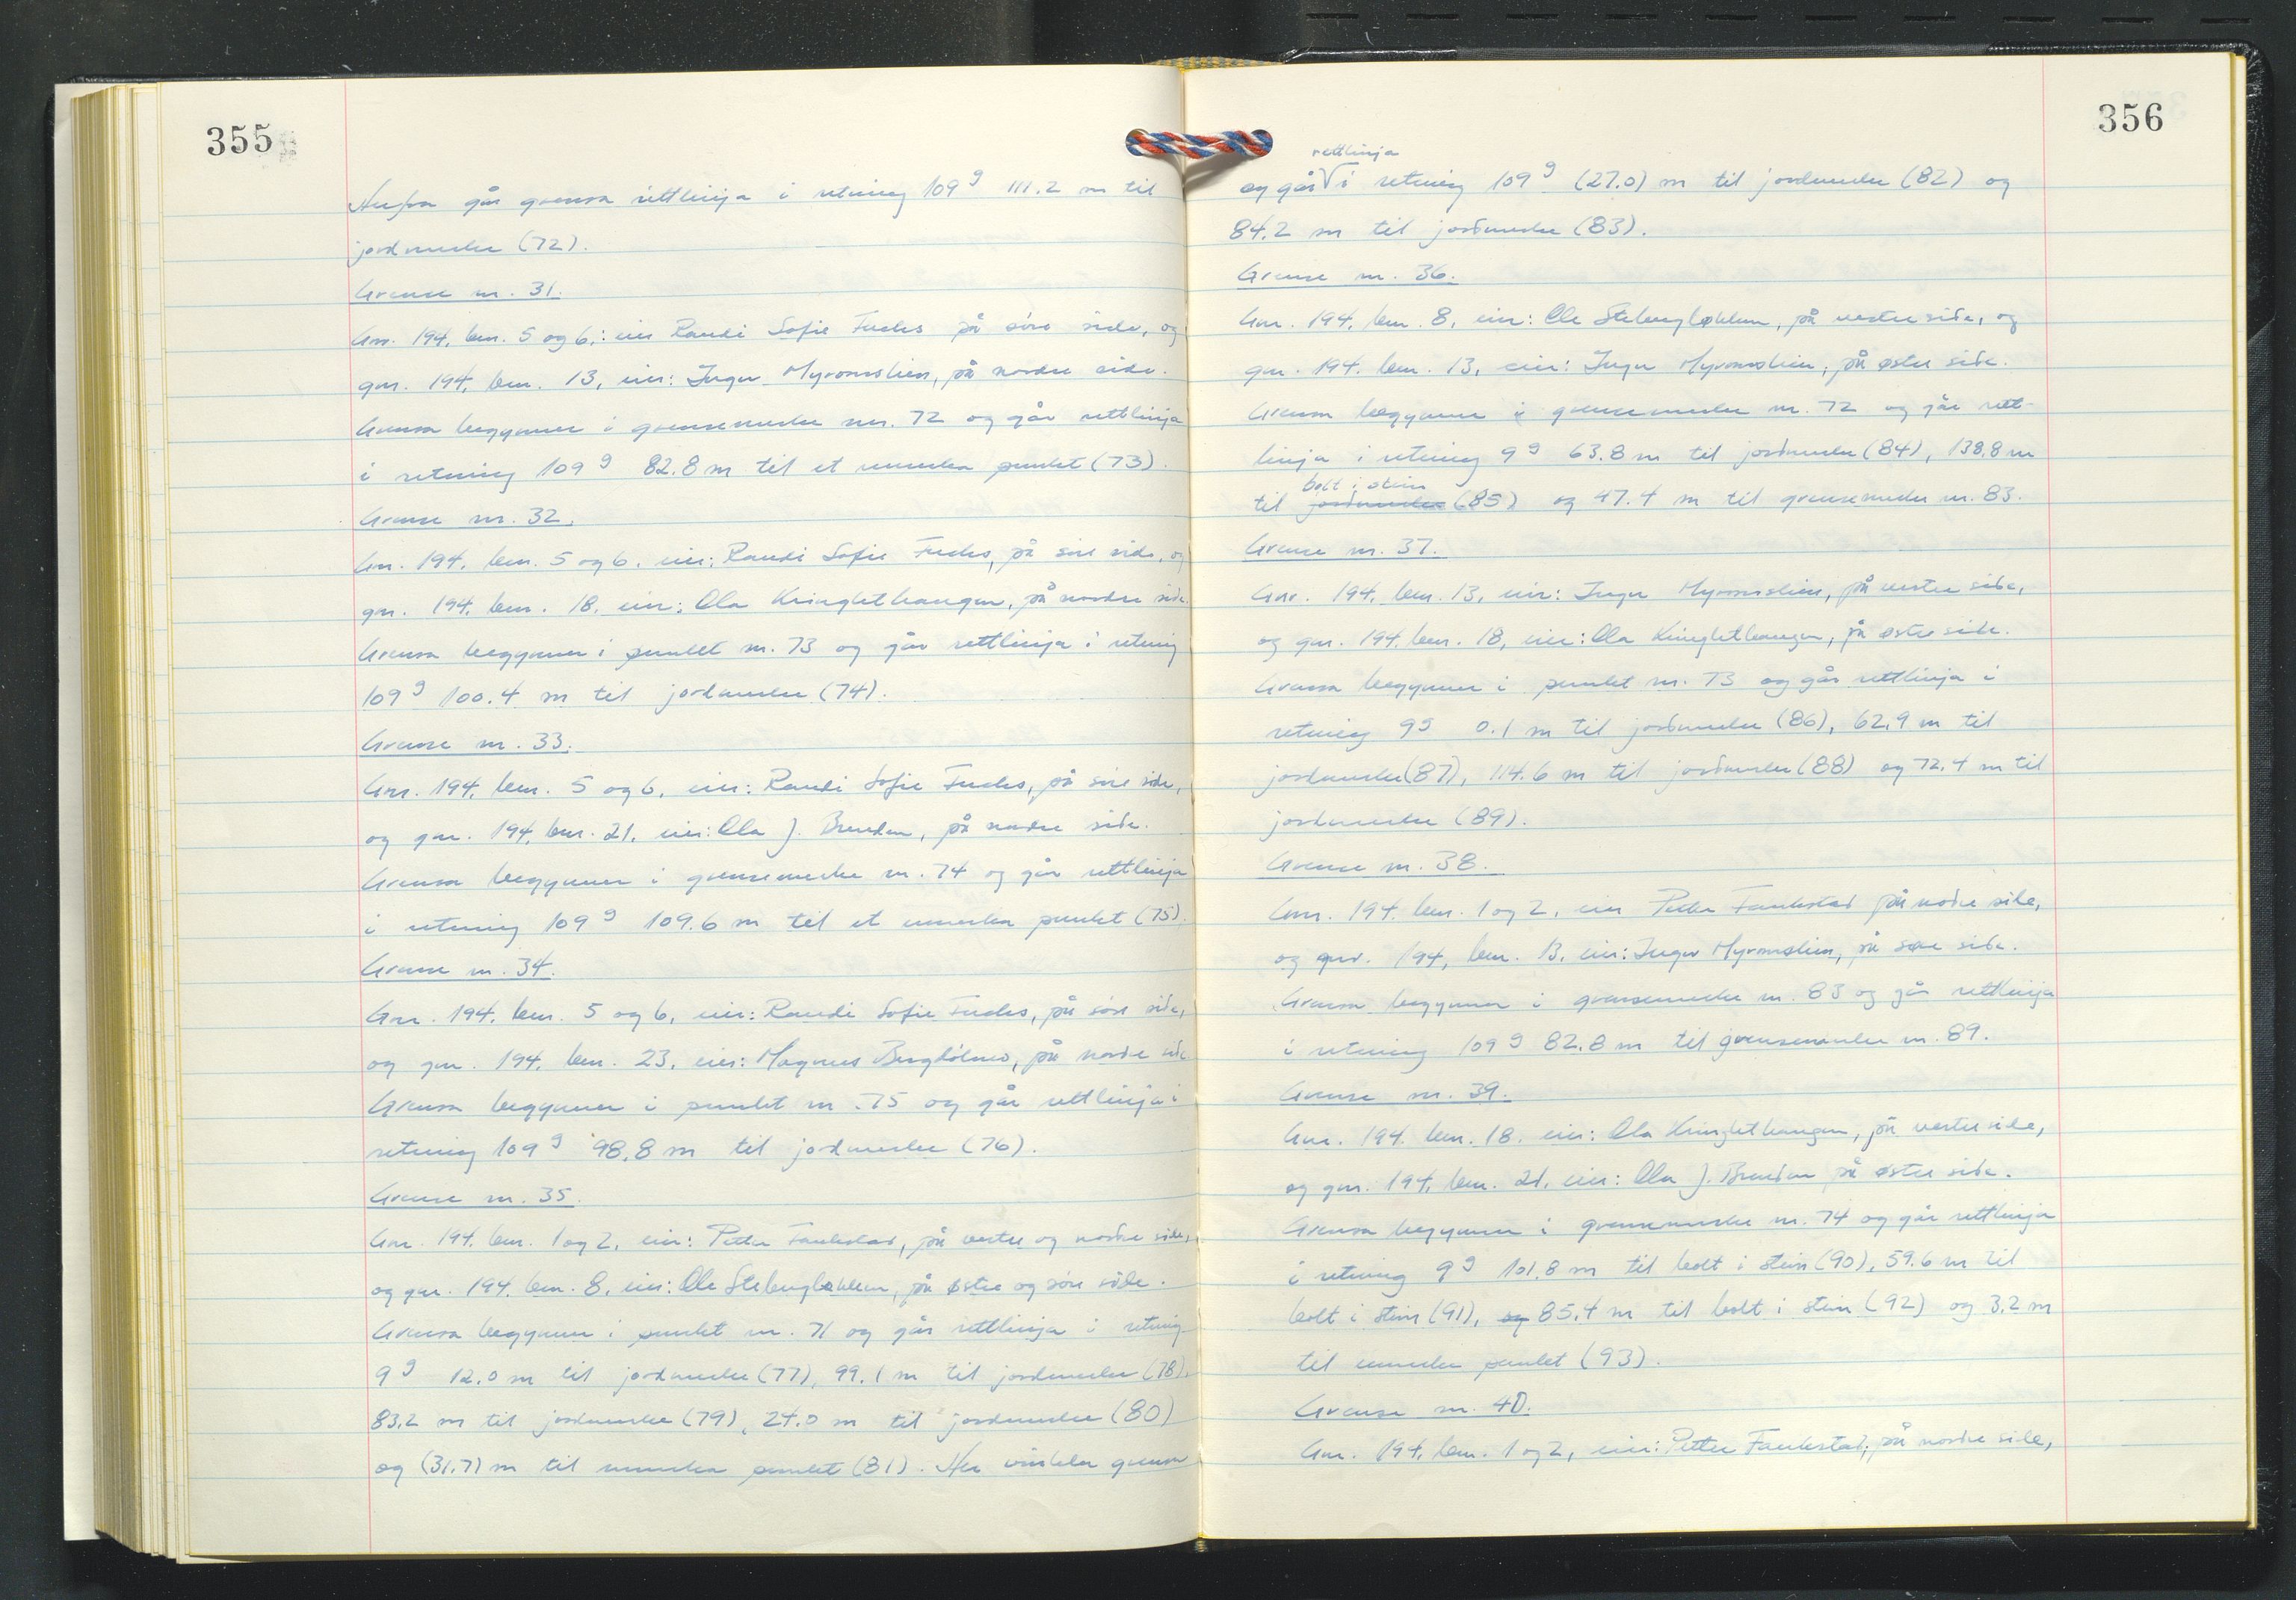 355
Herfra går grensa rettlinja i retning 109ᵍ 111.2 m til
jordmerke (72).
Grense nr. 31.
Gnr. 194, bnr. 5 og 6,: eier Randi Sofie Fuchs på søre side, og
gnr. 194, bnr. 13, eier: Inger Myromslien, på nordre side.
Grensa begynner i grensemerke nr. 72 og går rettlinja
i retning 109ᵍ 82.8 m til et umerka punkt (73).
Grense nr. 32.
Gnr. 194, bnr. 5 og 6, eier: Randi Sofie Fuchs, på søre side, og
gnr. 194, bnr. 18, eier: Ola Kringlethaugen, på nordre side.
Grensa begynner i punkt nr. 73 og går rettlinja i retning
109ᵍ 100.4 m til jordmerke (74).
Grense nr. 33.
Gnr. 194, bnr. 5 og 6, eier: Randi Sofie Fuchs, på søre side,
og gnr. 194, bnr. 21, eier: Ola J. Brenden, på nordre side.
Grensa begynner i grensemerke nr. 74 og går rettlinja
i retning 109ᵍ 109.6 m til et umerka punkt (75).
Grense nr. 34.
Gnr. 194, bnr. 5 og 6, eier: Randi Sofie Fuchs, på søre side,
og gnr. 194, bnr. 23, eier: Magnus Bergholmo, på nordre side
Grensa begynner i punkt nr. 75 og går rettlinja i
retning 109ᵍ 98.8 m til jordmerke (76).
Grense nr. 35.
Gnr. 194, bnr. 1 og 2, eier: Petter Faukstad, på vestre og nordre side,
og gnr. 194, bnr. 8, eier: Ole Stebergløkken, på østre og søre side.
Grensa begynner i punkt nr. 71 og går rettlinja i retning
9ᵍ 12.0 m til jordmerke (77), 99.1 m til jordmerke (78),
83.2 m til jordmerke (79), 24.0 m til jordmerke (80)
og (31.7) m til umerka punkt (81). Her vinkler grensa
356
rettlinja
og går √ i retning 109ᵍ (27.0) m til jordmerke (82) og
84.2 m til jordmerke (83).
Grense nr. 36.
Gnr. 194, bnr. 8, eier: Ole Stebergløkken, på vestre side, og
gnr. 194, bnr. 13, eier: Inger Myromslien, på østre side.
Grensa begynner i grensemerke nr. 72 og går rett-
linja i retning 9ᵍ 63.8 m til jordmerke (84), 138.8 m
bolt i stein
til jordmerke (85) og 47.4 m til grensemerke nr. 83.
Grense nr. 37.
Gnr. 194, bnr. 13, eier: Inger Myromslien, på vestre side,
og gnr. 194, bnr. 18, eier: Ola Kringlethaugen, på østre side.
Grensa begynner i punkt nr. 73 og går rettlinja i
retning 9ᵍ 0.1 m til jordmerke (86), 62.9 m til
jordmerke (87), 114.6 m til jordmerke (88) og 72.4 m til
jordmerke (89).
Grense nr. 38.
Gnr. 194, bnr. 1 og 2, eier Petter Faukstad på nordre side,
og gnr. 194, bnr. 13, eier: Inger Myromslien, på søre side.
Grensa begynner i grensemerke nr. 83 og går rettlinja
i retning 109ᵍ 82.8 m til grensemerke nr. 89.
Grense nr. 39.
Gnr. 194, bnr. 18, eier: Ola Kringlethaugen, på vestre side,
og gnr. 194, bnr. 21, eier: Ola J. Brenden på østre side.
Grensa begynner i grensemerke nr. 74 og går rettlinja
i retning 9ᵍ 101.8 m til bolt i stein (90), 59.6 m til
bolt i stein (91), og 85.4 m til bolt i stein (92) og 3.2 m
til umerka punkt (93).
Grense nr. 40.
Gnr. 194, bnr. 1 og 2, eier: Petter Faukstad, på nordre side,